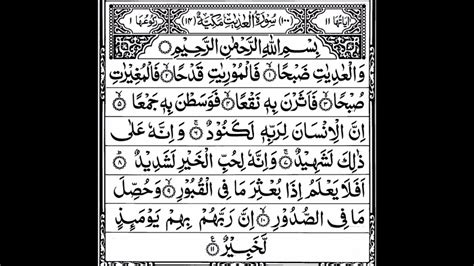 اٰیَاتُهَا ۱۱ (۱۰۰) سُوْرَةُ الْعٰدِیٰتِ مَكِّیَّةٌ (۱۴) رُكُوْعُهَا ۱
بِسْمِ اللّٰهِ الرَّحْمٰنِ الرَّحِیْمِ
وَ الْعٰدِیٰتِ ضَبْحًا ۱ فَالْمُوْرِیٰتِ قَدْحًا ۲ فَالْمُغِیْرٰتِ
صُبْحًا ۳ فَاَثَرْنَ بِهٖ نَقْعًا ۴ فَوَسَطْنَ بِهٖ جَمْعًا ۵
اِنَّ الْاِنْسَانَ لِرَبِّهٖ لَكَنُوْدٌ ۶ وَ اِنَّهٗ عَلٰی
ذٰلِكَ لَشَهِیْدٌ ۷ وَ اِنَّهٗ لِحُبِّ الْخَیْرِ لَشَدِیْدٌ ۸
اَفَلَا یَعْلَمُ اِذَا بُعْثِرَ مَا فِی الْقُبُوْرِ ۹ وَ حُصِّلَ
مَا فِی الصُّدُوْرِ ۱۰ اِنَّ رَبَّهُمْ بِهِمْ یَوْمَىِٕذٍ
لَّخَبِیْرٌ ۱۱